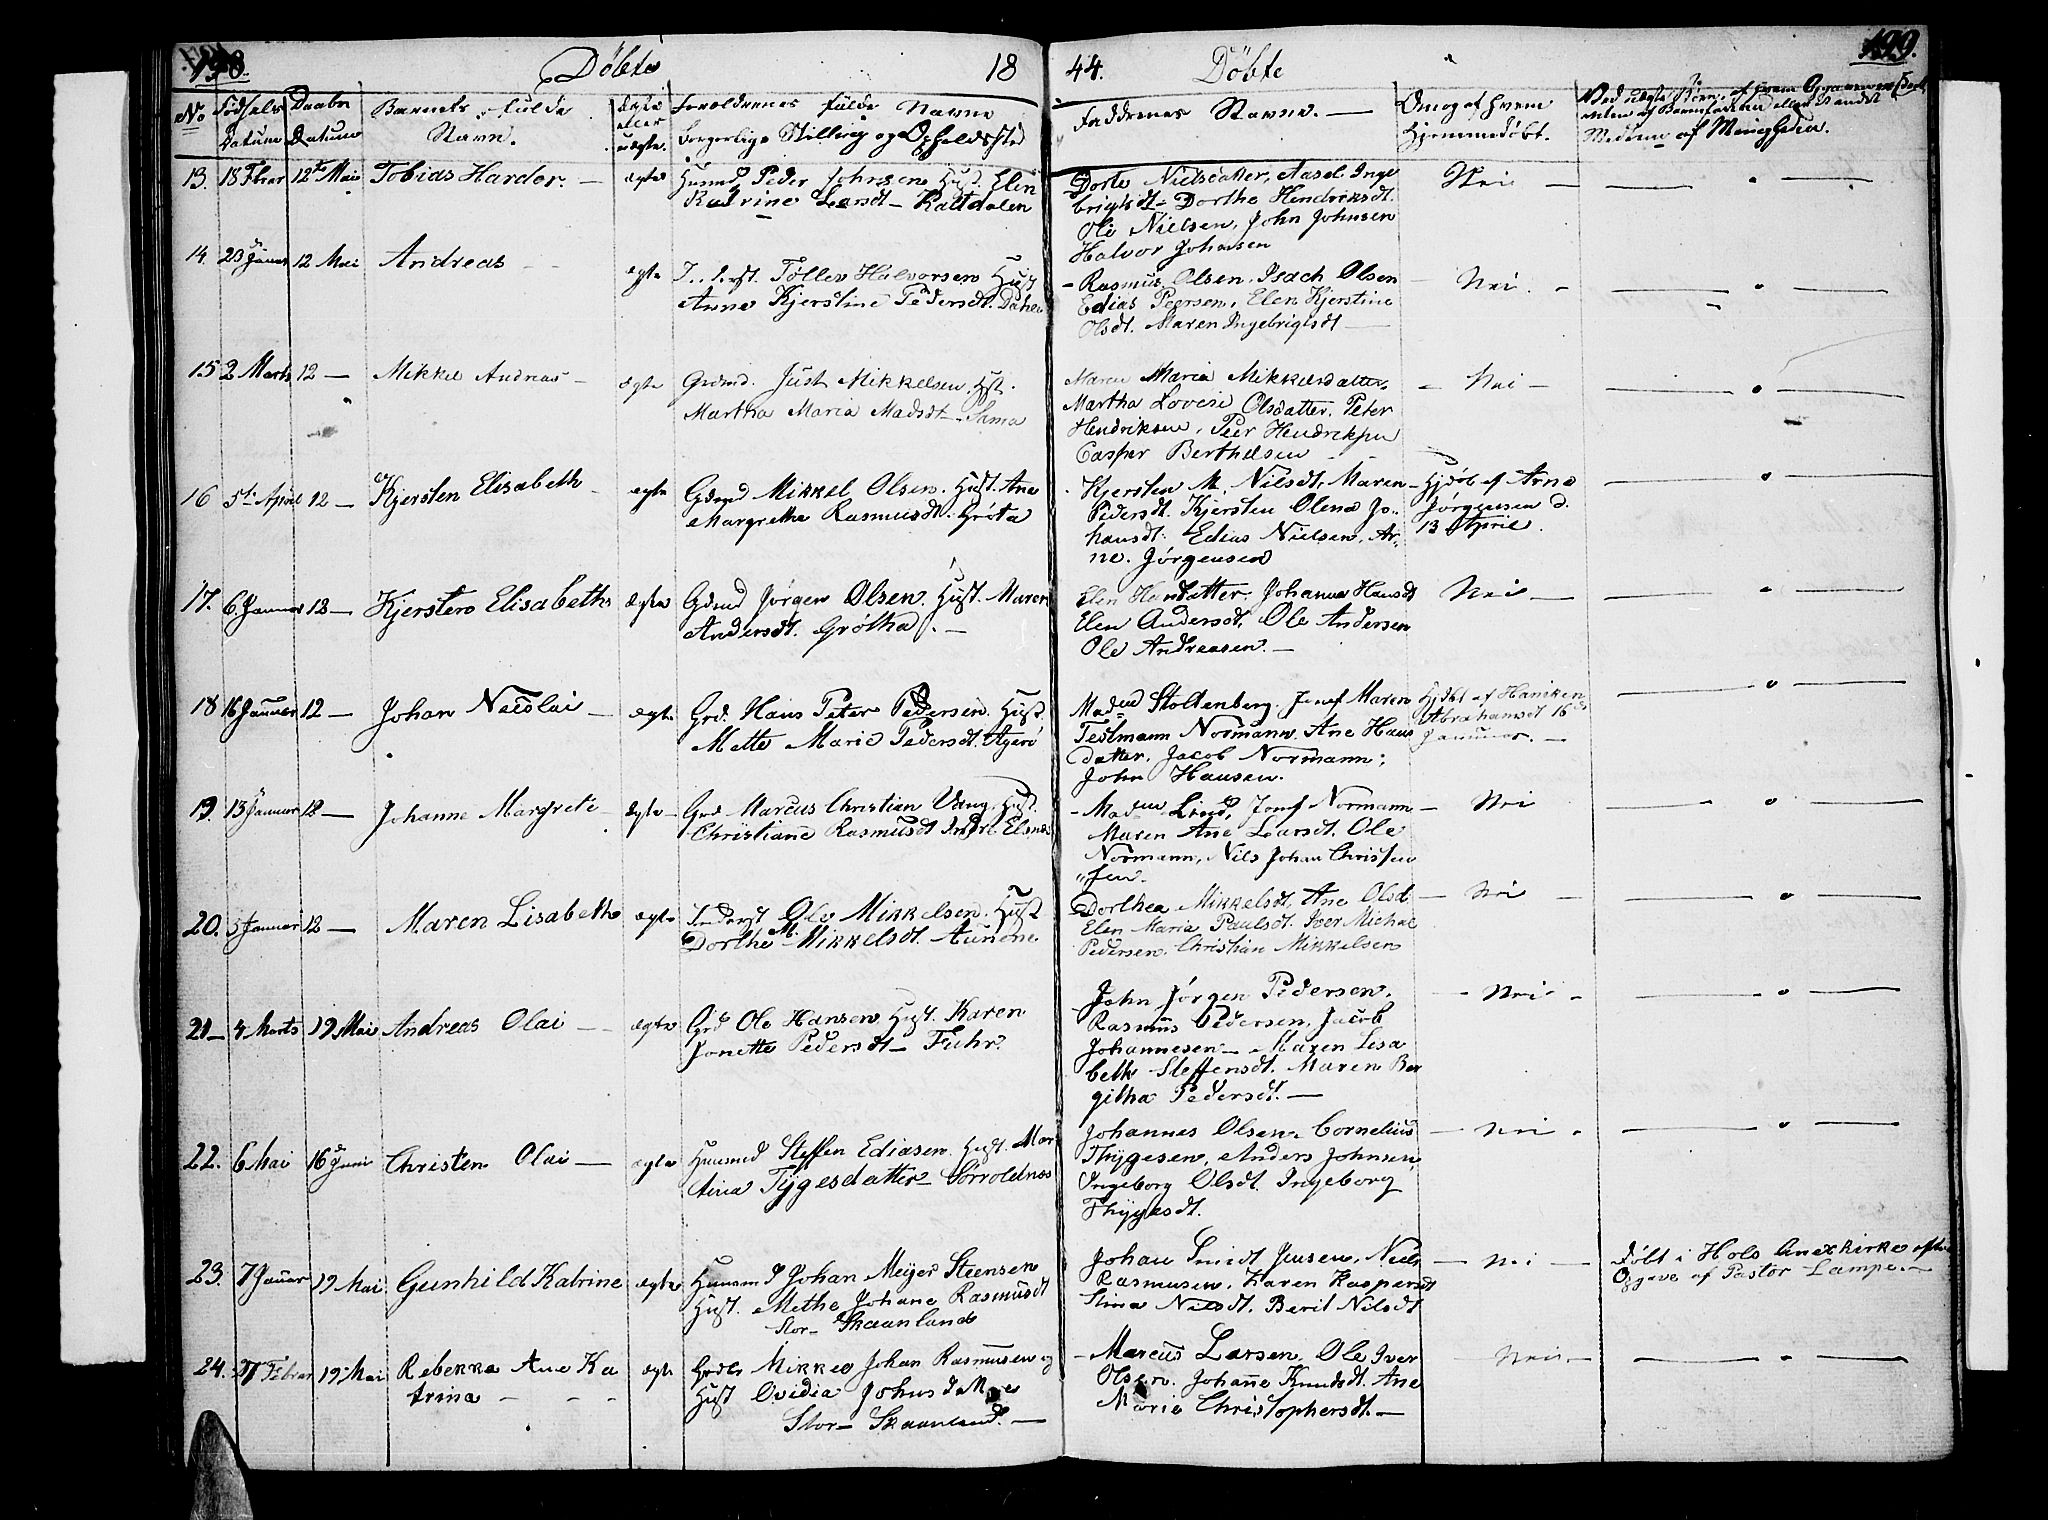 198. Döbte 18
44. Döbte 199.
No
Födsels Datum
Daabs Datum
Barnets fulde Navn.
ægte eller uægte.
Forældrenes fulde Navne
borgerlige Stilling og Opholdssted
Faddernes Navne. —
Om og af hvem
hjemmedöbt.
Medlem af Menigheden.
13. 18 Fbrar 12te Mai Tobias Harder. — ægte Husmd Peder Johnsen Hust. Elen
Katrine Larsdt — Kaltdalen
Dorte Nielsdatter, Aasel Inge
brigtsdt — Dorthe Hendriksdt.
Ole Nielsen, John Johnsen
Halvor Johnsen
Nei —
14. 23 Januar 12 Mai Andreas — ægte Tollev Halvorsen Hust
Anne Kjerstine Pedersdt.
– Rasmus Olsen. Isach Olsen
Edias Peersen, Elen Kjerstine
Olsdt. Maren Ingebrigtsdt —
Nei. –
15 2 Marts 12 — Mikkel Andreas – ægte Grdmd. Just Mikkelsen Hst.
Martha Maria Madsdt – Sama
Maren Maria Mikkelsdatter,
Martha Lovise Olsdatter. Peter
Hendriksen, Peer Hendriksen
Casper Berthelsen
– Nei –
16 5te April 12 — Kjersten Elisabeth – ægte Gdmd Mikkel Olsen. Hust. Ane
Margrethe Rasmusdt. Gröta
Kjersten M. Nielsdt, Maren
Pedersdt. Kjersten Olena Jo-
hansdt. Edias Nielsen, Ar-
ne. Jörgensen
– Hjdöb af Arne
Jörgensen d.
13 April.
17. 6 Januar 12 — Kjersten Elisabeth ægte Gdmd Jörgen Olsen. Hust. Maren
Andersdt. Grötha. —
Elen Hansdatter. Johanna Hansdt
Elen Andersdt, Ole Andersen
Ole Andreasen. —
Nei —
18 16 Januar 12 — Johan Nicolai — ægte Grd. Hans Peter Pedersen. Hust.
Mette Marie Pedersdt.
Madm Stoltenberg. Jomf Maren
Normann. Ane Hans
datter. Jacob Normann;
John Hansen.
Hjdöbt af
Abrahamsdt 16de
Januar. —
19. 13 Januar 12 — Johanne Margrete – ægte – Grd Marcus Christian Hust.
Christiane Rasmusdt Elsnæs
– Madm Lind, Jomf Normann
Maren Ane Larsdt. Ole
Normann, Nils Johan Christen
sen.
– Nei
20. 5 Januar 12 — Maren Lisabeth ægte Inderst Ole Mikkelsen. Hust
Dorthe M. Mikkelsdt.
Dorthea Mikkelsdt, Ane Olsd
Elen Maria Paulsdt. Iver Michal
Pedersen. Christian Mikkelsen
– Nei –
21 — 4 Marts 19 Mai Andreas Olai — ægte Grd Ole Hansen Hust. Karen
Jonette Pedersdt – Fuhr.
John Jörgen Pedersen.
Rasmus Pedersen, Jacob
Johannesen — Maren Lisa
beth Steffensdt. Maren Ber
githa Pedersdt. —
– Nei –
22. 6 Mai 16 Juni Christen Olai — ægte Huusmd Steffen Ediasen. Hust. Mar
tina Tygesdatter – Sörroldnæs
Johannes Olsen. Cornelius
Thygesen, Anders Johnsen
Ingeborg Olsdt. Ingeborg
Thygesdt.
– Nei –
23. 7 Januar 19 Mai Gunhild Katrine ægte Huusmd Johan Meijer Steensen
Hust. Methe Johane Rasmusdt
Stor – Skaanland
Johan Smidt Jensen, Niels
Rasmusen. Karen Kaspersdt
Stina Nilsdt. Beril Nilsdt
– Nei —
Döbt i Hols Anexkirke efter
Opgave af Pastor Lampe. —
24. 27 Febrar 19 Mai Rebekka Ane Ka
trina – – – ægte Mikkel Johan Rasmusen og
Hust Ovidia Johnsdatter
Stor – Skaanland. —
– Marcus Larsen. Ole Iver
Olsen. Johane Knudsdt. Ane
Maria Christophersdt. —
Nei. –